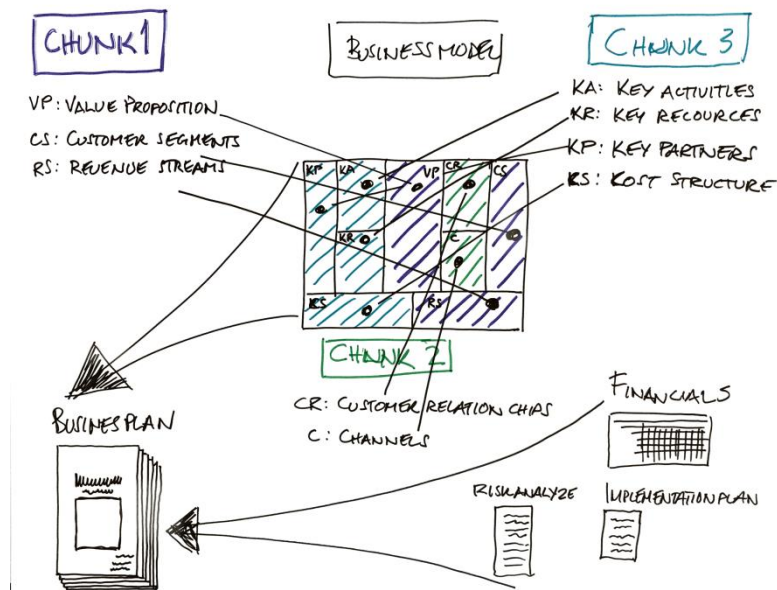 CHUNK 1
BUSINESS MODEL
CHUNK 3
VP: VALUE PROPOSITION
CS: CUSTOMER SEGMENTS
RS: REVENUE STREAMS
KA: KEY ACTIVITIES
KR: KEY RECOURCES
KP: KEY PARTNERS
KS: KOST STRUCTURE
KP KA VP CR CS
KR C
KS RS
CHUNK 2
CR: CUSTOMER RELATION CHIPS
C: CHANNELS
BUSINESPLAN
FINANCIALS
RISKANALYZE
IMPLEMENTATIONPLAN